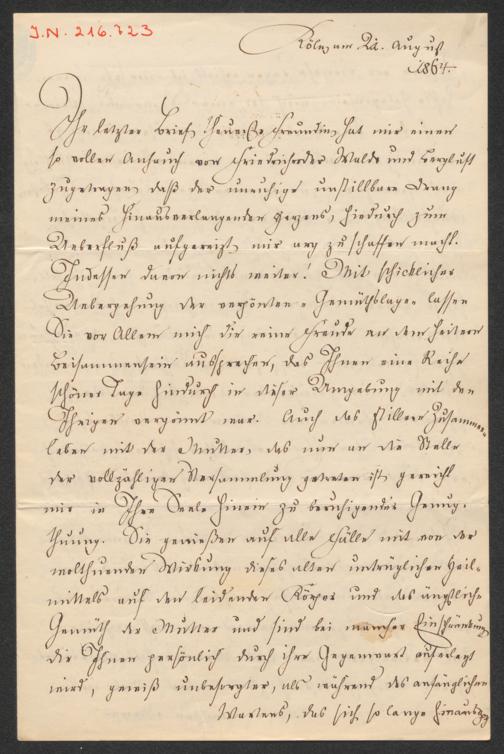 J.N. 216.723
Köln, am 22. August
1864.
Ihr letzter Brief, theuerste Freundin, hat mir einen
so vollen Anhauch von Friedrichroder Wald- und Bergluft
zugetragen, daß der unruhige unstillbare Drang
meines hinausverlangenden Herzens, hiedurch zum
Ueberfluß aufgereizt, mir arg zu schaffen macht.
Indessen davon nichts weiter! Mit schicklicher
Uebergehung der verpönten "Gemüthslage" lassen
Sie vor Allem mich die reine Freude an dem heitern
Beisammensein aussprechen, das Ihnen eine Reihe
schöner Tage hindurch in dieser Umgebung mit den
Ihrigen vergönnt war. Auch das stillere Zusammen-
leben mit der Mutter, das nun an die Stelle
der vollzähligen Versammlung getreten ist, gereicht
mir in Ihre Seele hinein zu beruhigender Genug-
thuung. Sie genießen auf alle Fälle mit von der
wolthuenden Wirkung dieses alten untrüglichen Heil-
mittels auf den leidenden Körper und das ängstliche
Gemüth der Mutter und sind bei mancher Einschränkung
die Ihnen persönlich durch ihre Gegenwart auferlegt
wird, gewiß unbesorgter, als während des anfänglichen
Wartens, das sich so lange hinauszog